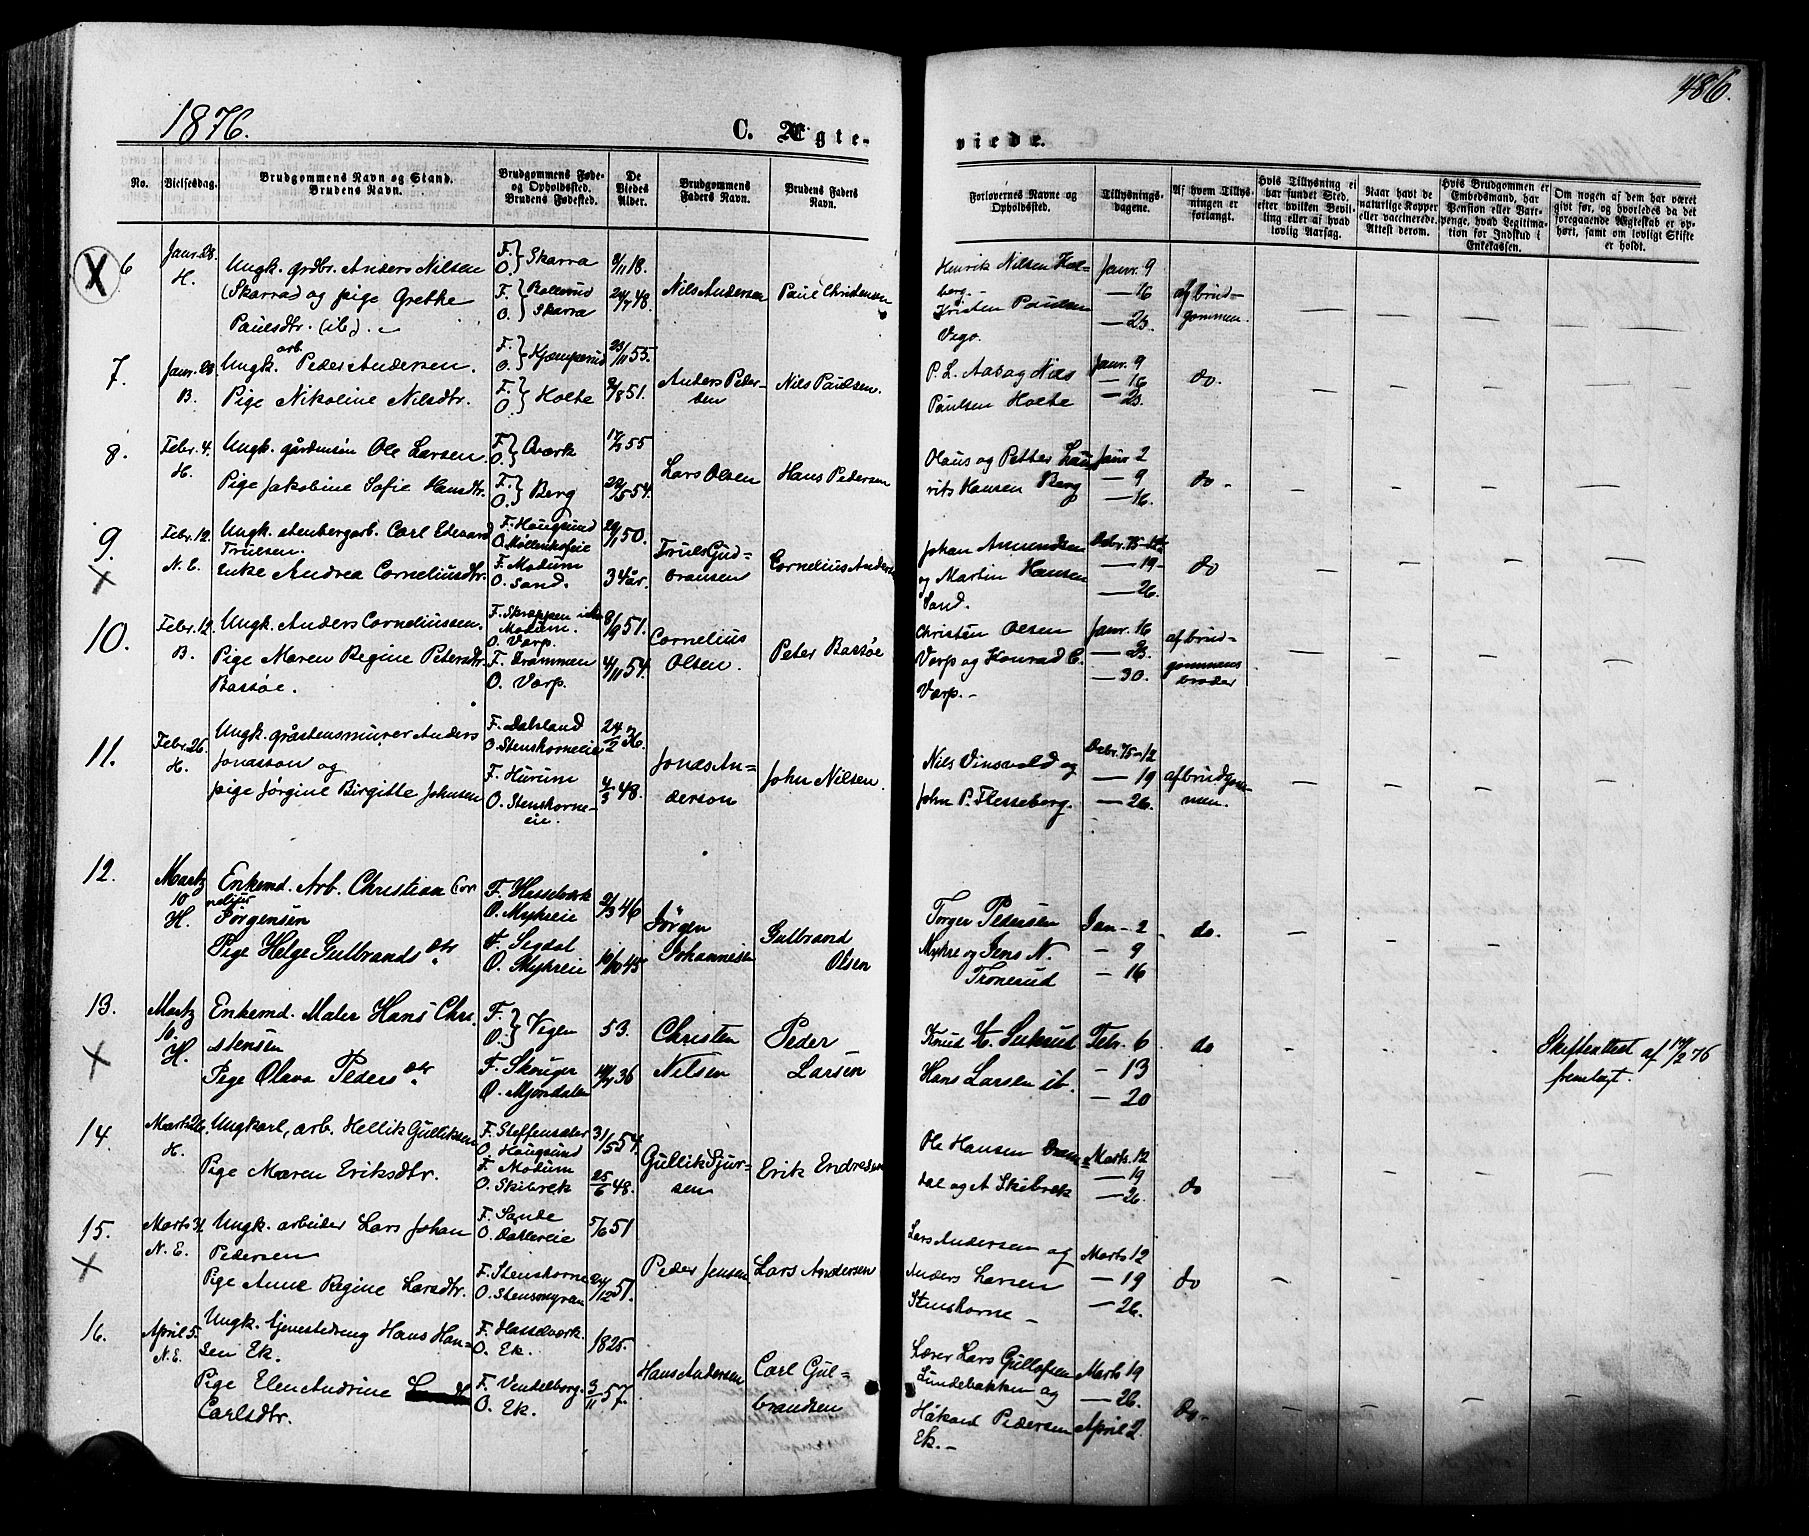 1876.
C. Ægte-
viede.
486.
No.
Vielsesdag.
Brudgommens Navn og Stand.
Brudens Navn.
Brudgommens Føde-
og Opholdssted.
Brudens Fødested.
De
Viedes
Alder.
Brudgommens
Faders Navn.
Brudens Faders
Navn.
Forlovernes Navne og
Opholdssted.
Tillysnings-
dagene.
Af hvem Tillys-
ningen er
forlangt.
Hvis Tillysning ei
har fundet Sted,
efter hvilken Bevil-
ling eller af hvad
lovlig Aarsag.
Naar havt de
naturlige Kopper
eller vaccinerede.
Attest derom.
Hvis Brudgommen er
Embedsmand, har var
Pension eller Vart-
penge, hvad Legitima-
tion for Indskud i
Enkekassen.
Om nogen af dem har været
givt før, og hvorledes da det
foregaaende Ægteskab er op-
hørt, samt om lovligt Skifte
er holdt.
X 6
Janr. 28.
H.
Ungk. grdbr. Anders Nilsen
(Skarra) og pige Grethe
Paulsdtr. (ib).
F. O. } Skarra
F. Bollerud
O. Skarra
8/11 18.
24/7 48.
Nils Andersen
Paul Christensen
Henrik Nilsen Hol-
berg.
Kristen Paulsen
Vego.
Janr. 9
— 16
— 23.
af brud-
gommen.
7.
Janr. 28
B.
Ungk. arb. Peder Andersen.
Pige Nikoline Nilsdtr.
F. O. } Kjemperud
F. O. } Holte
23/11 55.
8/8 51.
Anders Peder-
sen
Nils Paulsen.
P. L. Aas og Nils
Paulsen Holte
Janr. 9
— 16
— 23.
do.
8.
Febr. 4.
H.
Ungk. gårdmsøn Ole Larsen
Pige Jakobine Sofie Hansdtr.
F. O. } Qværk
F. O. } Berg
55
54.
Lars Olsen
Hans Pedersen
Olaus og Petter Lau
rits Hansen Berg
Janr 2
— 9
— 16.
do -
9.
X
Febr. 12.
N. E.
Ungk. stenbergarb. Carl Edevard
Truelsen.
Enke Andrea Corneliusdtr.
F. Hougsund
O. Møllenhofeie
F. Modum
O. Sand.
50.
34 år.
Truls Gud-
bransen
Cornelius Anders
Johan Amundsen
og Martin Hansen
Sand.
Debr. 75 - 12
— 19 -
— 26.
do
10.
Febr. 12.
B.
Ungk. Anders Corneliussen.
Pige Maren Regine Petersdtr.
Bassøe.
F. Skreppen
Modum.
O. Værp.
F. Drammen
O. Værp.
8/9 51.
4/11 54.
Cornelius
Olsen.
Peter Bassøe
Christen Olsen
Værp og Konrad C.
Værp. -
Janr. 16
— 23.
— 30.
af brud-
gommens
broder
11.
Febr. 26.
H.
Ungk. gråstensmurer Anders
Jonasson og
pige Jørgine Birgitte Johnsen
F. Dalsland
O. Stenshorneie
F. Hurum
O. Stenshorne-
eie.
24/2 36.
4/3 48.
Jonas An-
derson
John Nilsen.
Nils Vinsvold og
John P. Flesseberg.
Debr. 75 - 12
— 19
— 26.
af brudgom-
men.
12.
Martz
10
H.
Enkemd. Arb. Christian Cor
nelius
Jørgensen
Pige Helge Gulbrands Dtr
F. Hasselværk
O. Myhreie
F. Sigdal
O. Myhreie
46
10/10 45
Jörgen
Johannesen
Gulbrand
Olsen
Torger Pedersen
Myhre og Jens N.
Tronerud
Jan - 2
- 9
- 16
do.
13.
X
Martz
10.
H.
Enkemd. Maler Hans Chri
stensen
Pige Olava Peders Dtr
F. O. } Vegen
F. Skouger
O. Mjöndalen
53.
36
Christen
Nilsen
Peder
Larsen
Knud K. Sukrud
Hans Larsen ib.
Febr. 6
- 13
- 20
do
Skifteattest af 76
fremlagt.
14
Marts 26.
H.
Ungkarl, arb. Hellik Gulliksen
Pige Maren Eriksdtr.
F. Steffensater
O. Hougsund
F. Modum
O. Skibrek
31/5 54.
25/6 48.
Gullik Sjur-
sen
Erik Endresen
Ole Hansen Dram
dal og A Skibrek
Marts. 12
— 19
— 26.
do
15.
X
Marts 31
N. E.
Ungk. arbeider Lars Johan
Pedersen
Pige Anne Regine Larsdtr.
F. Sande
O. Dahlereie
F. Stenshorne
O. Stensmyran
5/6 51
24/12 51.
Peder Jensen
Lars Andersen
Lars Andersen og
Anders Larsen
Stenshorne -
Marts 12
— 19
— 26.
do
16.
April 5.
N.E.
Ungk. tjenestedreng Hans Han-
sen Ek.
Pige Elen Andrine
Carlsdtr.
F. Hasselværk.
O. Ek.
F. Vendelborg.
O. Ek.
1825.
3/11 57.
Hans Andersen
Carl Gul-
brandsen
Lærer Lars Gullofsen
Lundebakken og
Håkard Pedersen
Ek. -
Marts 19
— 26.
April 2.
do -